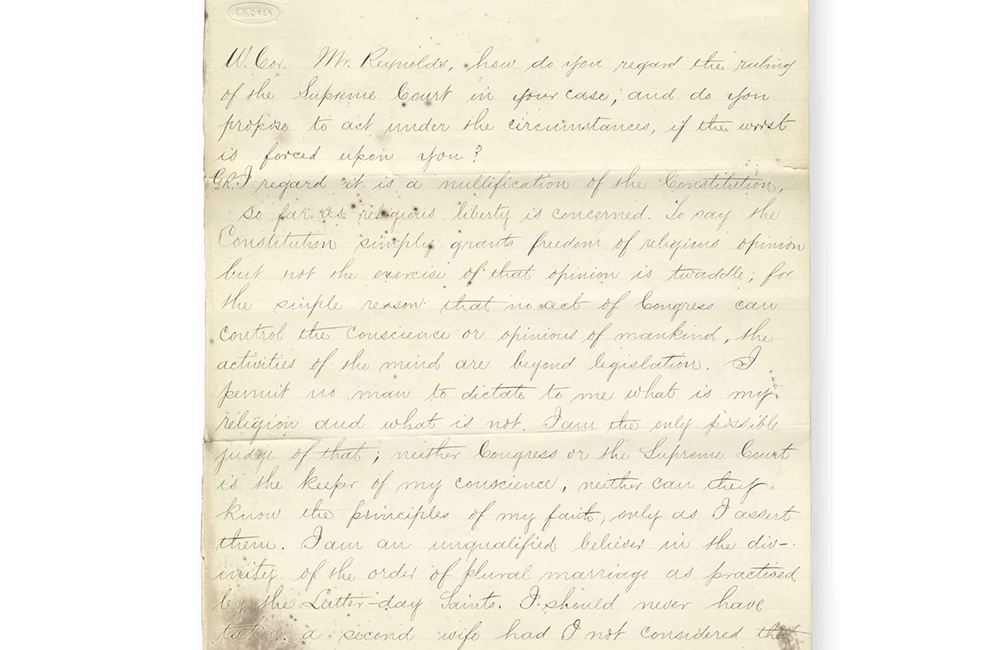 W. Cor. Mr. Reynolds, how do you regard the ruling
of the Supreme Court in your case; and do you
propose to act under the circumstances, if the worst
is forced upon you?
G.R. I regard it is a nullification of the Constitution,
so far as religious liberty is concerned. To say the
Constitution simply grants freedom of religious opinion
but not the exercise of that opinion is twaddle; for
the simple reason that no act of Congress can
control the conscience or opinions of mankind, the
activities of the mind are beyond legislation. I
permit no man to dictate to me what is my
religion and what is not. I am the only possible
judge of that; neither Congress or the Supreme Court
is the keeper of my conscience, neither can they
know the principles of my faith, only as I assert
them. I am an unqualified believer in the div-
inity of the order of plural marriage as practised
by the Latter-day Saints. I should never have
taken a second wife had I not considered that